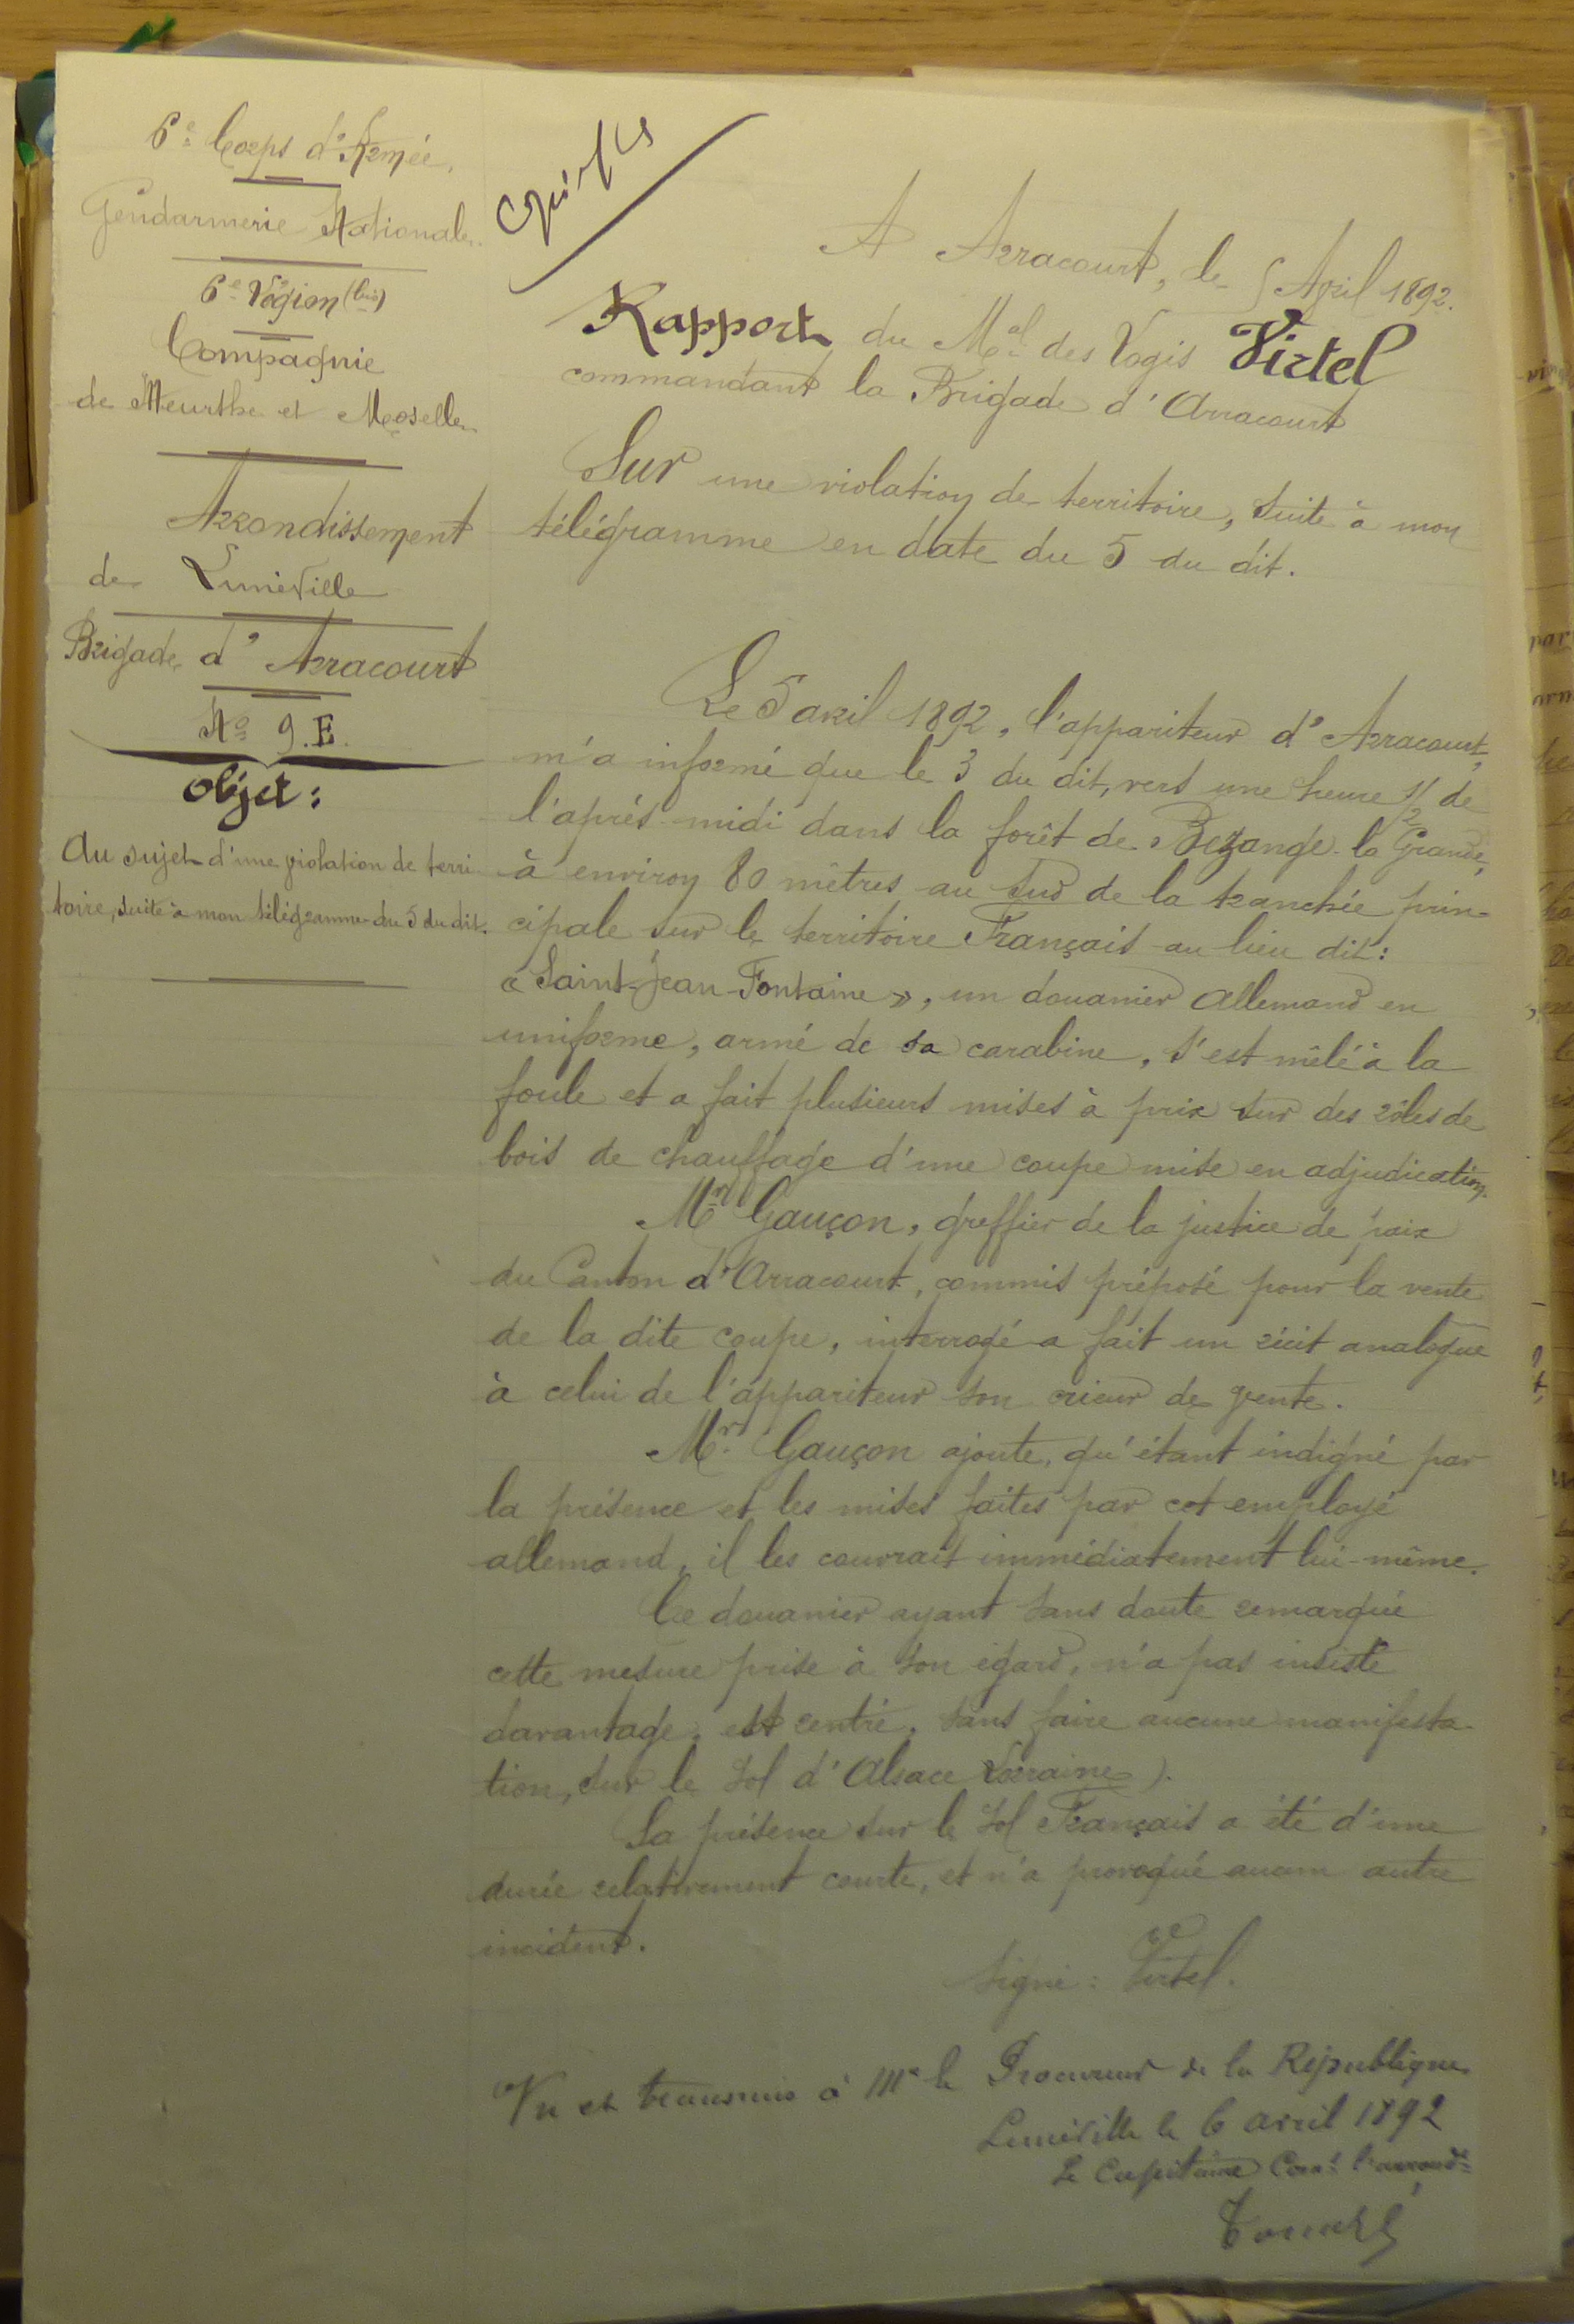 6e Corps d'Armée.
Gendarmerie Nationale.
6e Légion (bis)
Compagnie
de Meurthe et Moselle
Arrondissement
de Lunéville
Brigade d'Arracourt
No 9.E.
Objet :
Au sujet d'une violation de terri-
toire, suite à mon télégramme du 5 du dit.
A Arracourt, le 5 Avril 1892.
Rapport du Mal des Logis Virtel
commandant la Brigade d'Arracourt
Sur une violation de territoire, suite à mon
télégramme en date du 5 du dit.
Le 5 avril 1892, l'appariteur d'Arracourt,
m'a informé que le 3 du dit, vers une heure 1/2 de
l'après-midi dans la forêt de Bezange-la-Grande,
à environ 80 mètres au sud de la tranchée prin-
cipale sur le territoire Français au lieu dit :
« Saint-Jean-Fontaine », un douanier Allemand en
uniforme, armé de sa carabine, s'est mêlé à la
foule et a fait plusieurs mises à prix sur des rôles de
bois de chauffage d'une coupe mise en adjudication.
Mr Gauçon, greffier de la justice de paix
du Canton d'Arracourt, commis préposé pour la vente
de la dite coupe, interrogé a fait un récit analogue
à celui de l'appariteur son crieur de vente.
Mr Gauçon ajoute, qu'étant indigné par
la présence et les mises faites par cet employé
allemand, il les couvrait immédiatement lui-même.
Ce douanier ayant sans doute remarqué
cette mesure prise à son égard, n'a pas insisté
davantage, est rentré, sans faire aucune manifesta-
tion, sur le sol d'Alsace Lorraine).
Sa présence sur le sol Français a été d'une
durée relativement courte, et n'a provoqué aucun autre
incident.
Signé : Virtel.
Vu et transmis à Mr le Procureur de la République
Lunéville le 6 avril 1892
Le Capitaine Comt l'arrondt